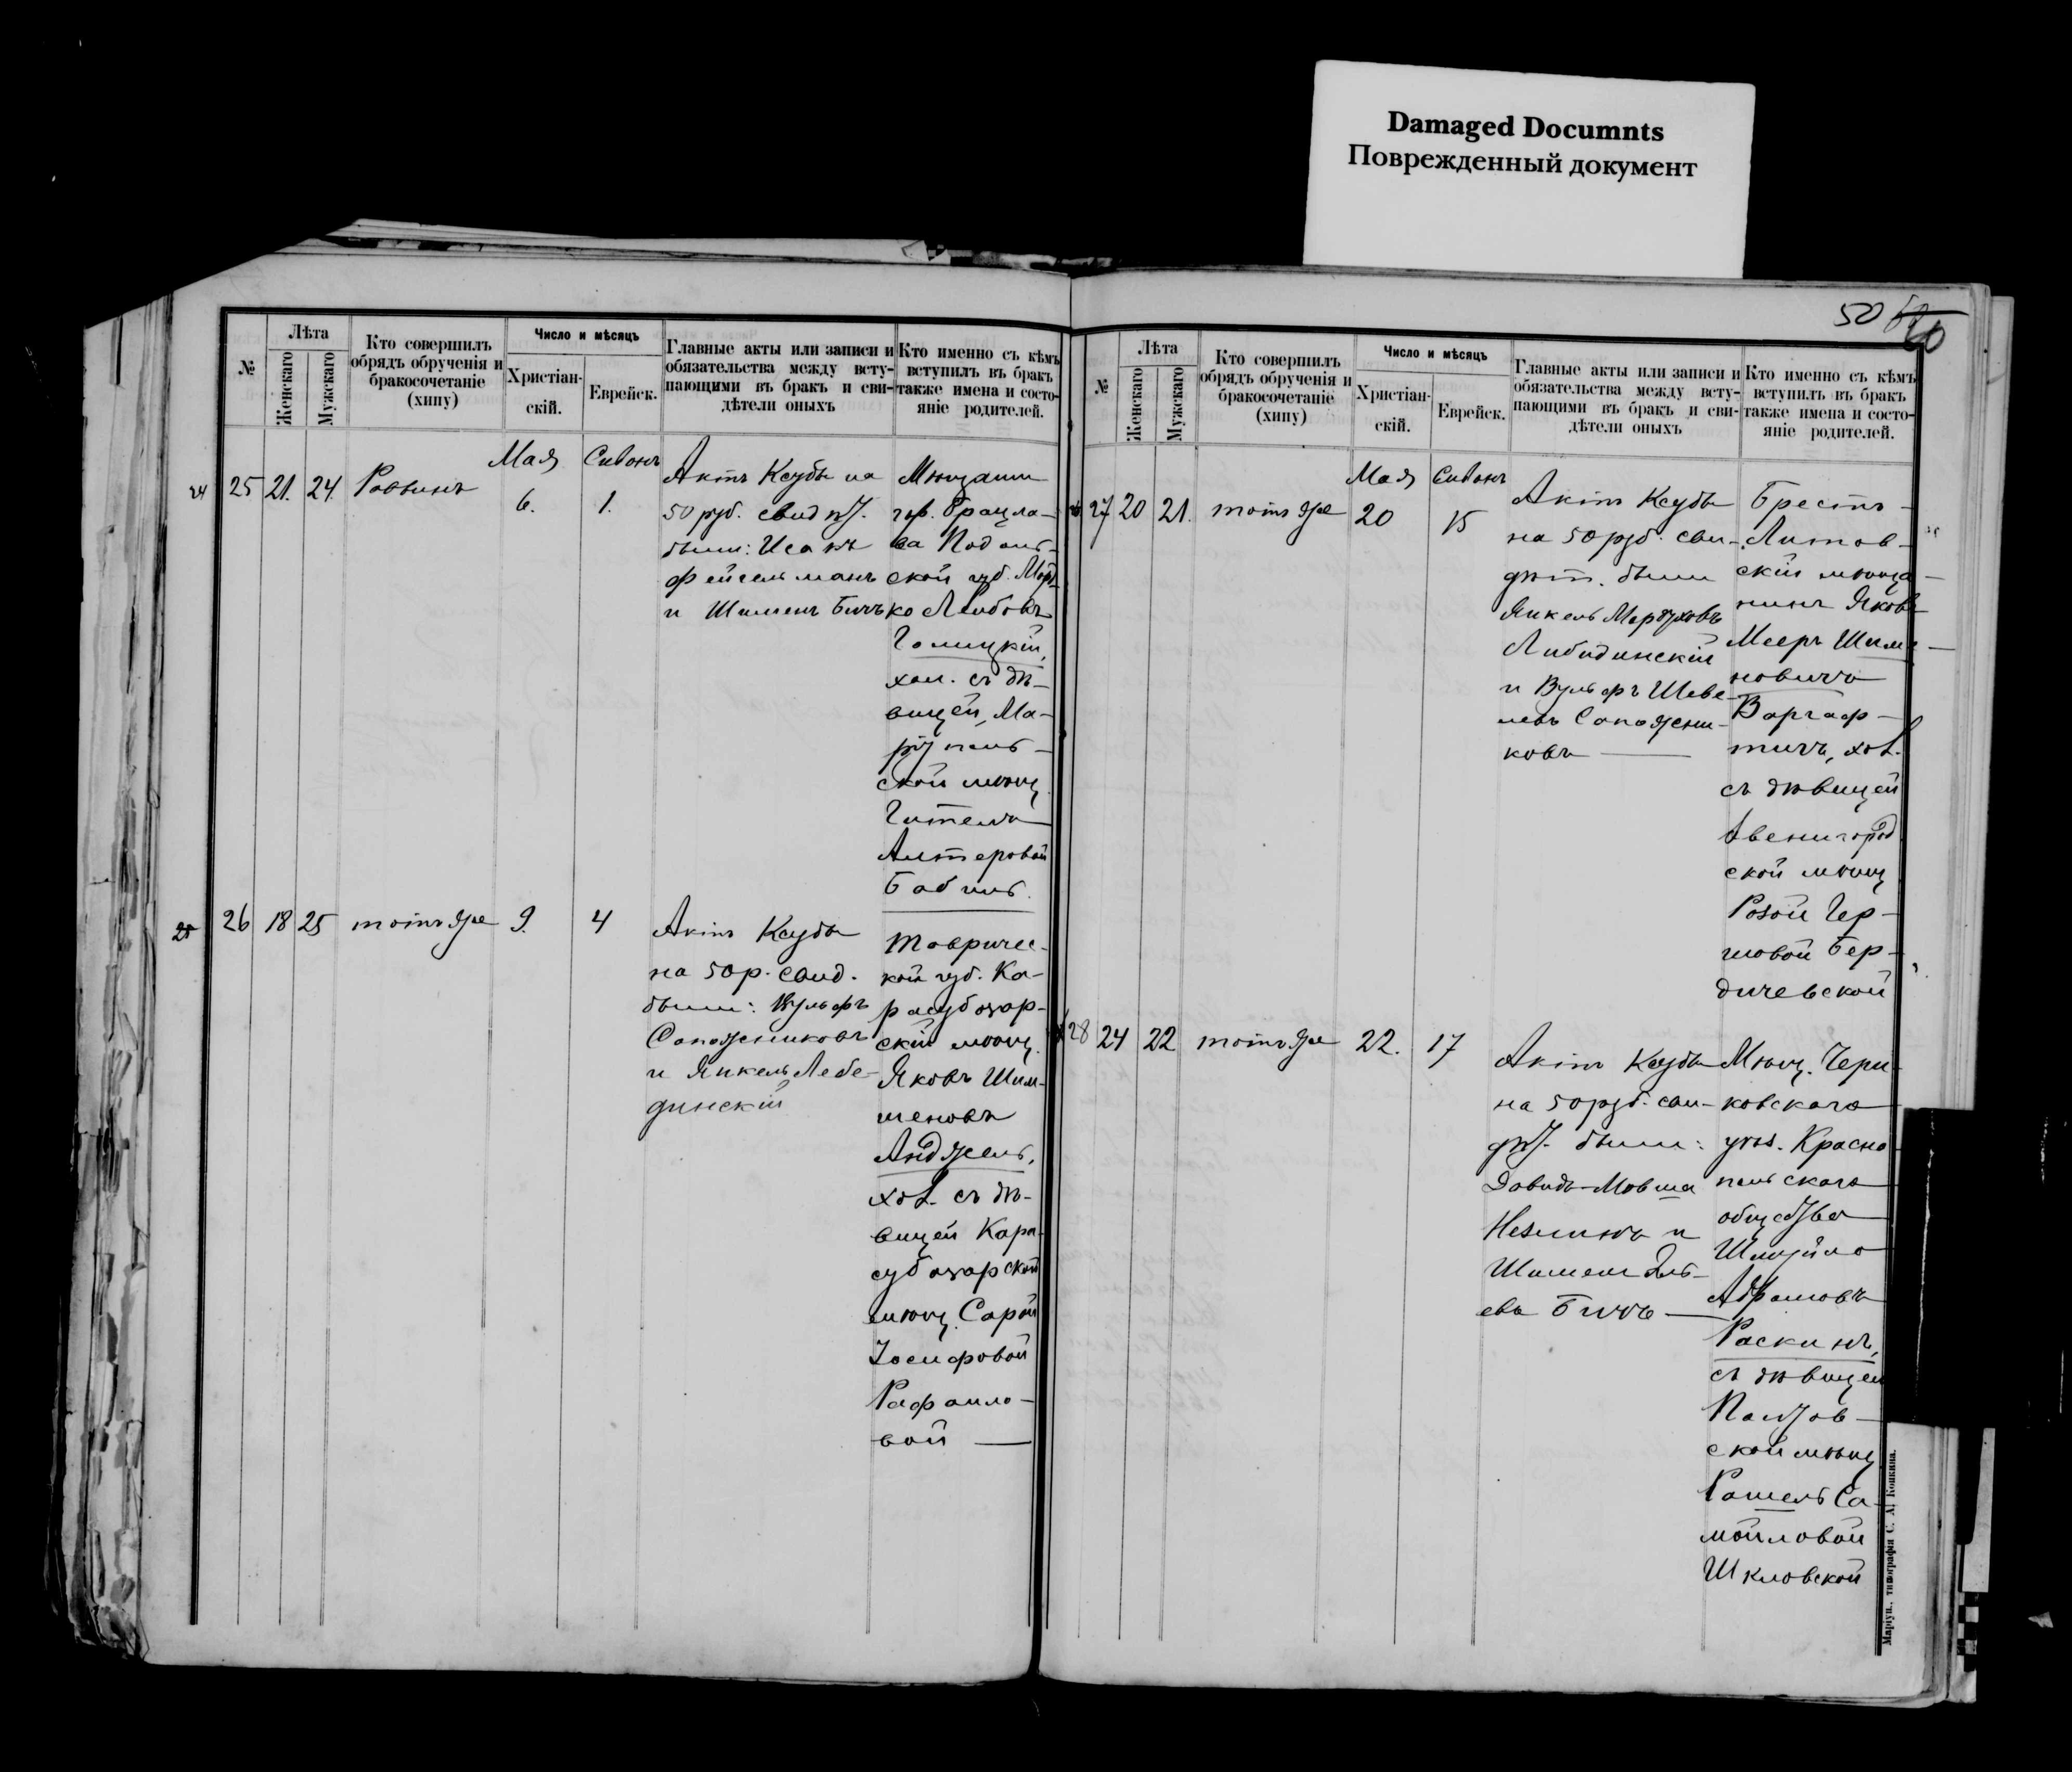 Damaged Documnts
Поврежденный документ
50
60
№
Лѣта
Женскаго
Мужскаго
Кто совершилъ
обрядъ обрученія и
бракосочетаніе
(хипу)
Число и мѣсяцъ
Христіан-
скій.
Еврейск.
Главные акты или записи и
обязательства между всту-
пающими въ бракъ и сви-
дѣтели оныхъ
Кто именно съ кѣмъ
вступилъ въ бракъ
также имена и состо-
яніе родителей.
24
25
21.
24.
Раввинъ
Мая
6.
Сивонъ
1.
Актъ Ксубы на
50 руб. свидѣт.
были: Исакъ
Фейгельманъ
и Шименъ Бичъ
Мѣщанин
гор. Брацла-
ва Подоль-
ской губ. Морд-
ко Лейбовъ
Голицкій,
хол. съ дѣ-
вицей, Ма-
ріупель-
ской мѣщ.
Гителя
Алтеровой
Бабиль.
25
26
18
25
тотъ же
9.
4
Актъ Ксубы
на 50 р. свид.
были: Вульфъ
Сапожниковъ
и Янкель Лебе-
динскій
Тавричес-
кой губ. Ка-
расубазар-
скій мѣщ.
Яковъ Шим-
шеновъ
Анджель,
хол. съ дѣ-
вицей Кара-
субазарской
мѣщ. Сарой
Іосифовой
Рафаило-
вой —
№
Лѣта
Женскаго
Мужскаго
Кто совершилъ
обрядъ обрученія и
бракосочетаніе
(хипу)
Число и мѣсяцъ
Христіан-
скій.
Еврейск.
Главные акты или записи и
обязательства между всту-
пающими въ бракъ и сви-
дѣтели оныхъ
Кто именно съ кѣмъ
вступилъ въ бракъ
также имена и состо-
яніе родителей.
27
20
21.
тотъ же
Мая
20
Сивонъ
15
Актъ Ксубы
на 50 руб. сви-
дѣт. были
Янкель Мордуховъ
Либидинскій
и Вульфъ Шеве-
левъ Сапожни-
ковъ —
Брестъ-
Литов-
скій мѣща-
нинъ Яковъ
Мееръ Шиме-
новичъ
Варгаф-
тичъ, хол.
съ дѣвицей
Звенигород-
ской мѣщ.
Розой Гер-
шовой Бер-
дичевской
28
24
22
тотъ же
22.
17
Актъ Ксубы
на 50 руб. сви-
дѣт. были:
Давидъ-Мовша
Незлинъ и
Шимень Эль-
евъ Бичъ —
Мѣщ. Чери-
ковскаго
уѣз. Красно-
польскаго
общества
Шмуйло
Абрамовъ
Раскинъ,
съ дѣвицей
Полтов-
ской мѣщ.
Рашель Са-
мойловой
Шкловской
Маріуп., типографія С. А. Копкина.